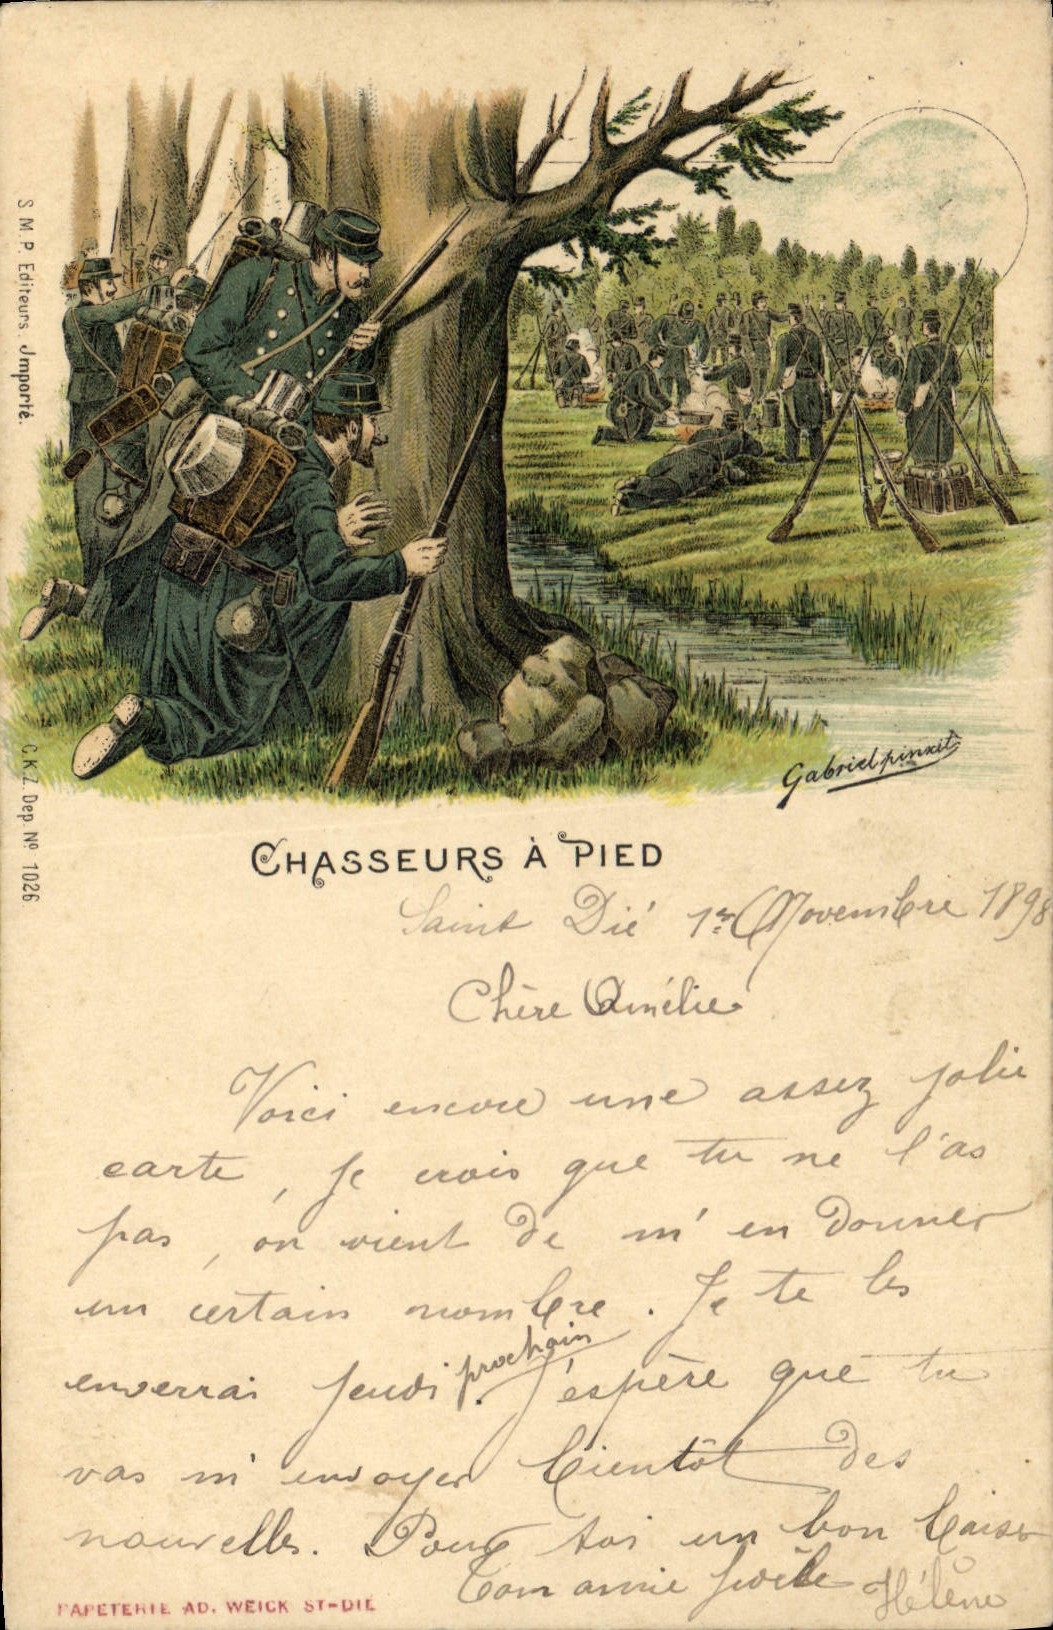 S. M. P. Editeurs. Importé.
C.K.Z. Dep. Nº 1026
Gabriel pinxit
CHASSEURS À PIED
Saint Dié 1er Novembre 1898
Chère Amélie
Voici encore une assez jolie
carte, je crois que tu ne l'as
pas, on vient de m'en donner
un certain nombre. Je te les
enverrai jeudi prochain. J'espère que tu
vas m'envoyer bientôt des
nouvelles. Pour toi un bon baiser
Ton amie
Hélène
PAPETERIE AD. WEICK ST-DIÉ